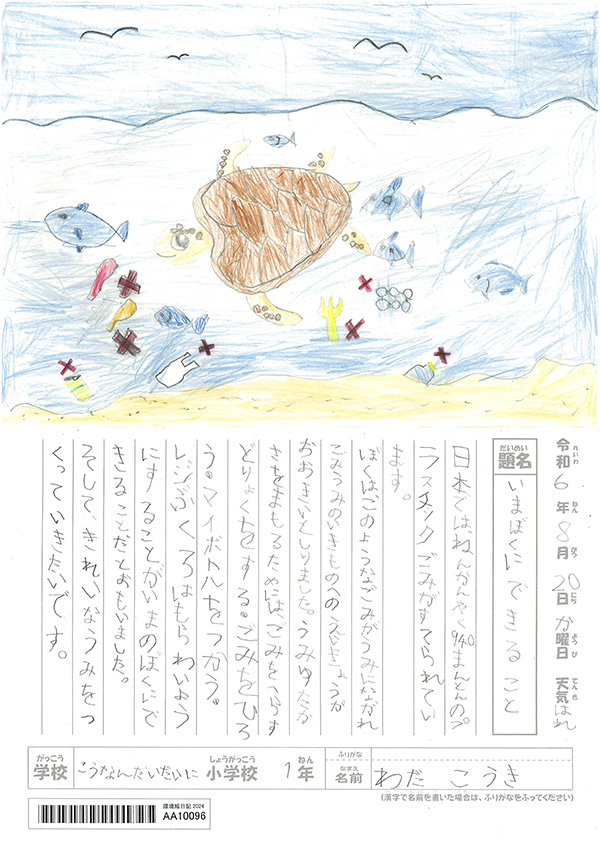 令和6年8月20日か曜日 天気はれ
れいわ ねん がつ にち ようび てんき
だいめい
題名 いまぼくにできること
日本では、ねんかんやく940まんとんのプ
ラスチックごみがすてられてい
ます。
ぼくはこのようなごみがうみにながれ
こみうみのいきものへのきょうが
おおきいとしりました。うみゆたか
さをまもるためにはごみをへらす
どりょくをする。ごみをひろ
う。マイボトルをつかう。
レジぶくろはもらわいよう
にすることがいまのぼくにで
きることだとおもいました。
そしてきれいなうみをつ
くっていきたいです。
がっこう しょうがっこう ねん
学校 こうなんだいだいに 小学校 1年
ふりがな
なまえ
名前 わだ こうき
(漢字で名前を書いた場合は、ふりがなをふってください)
環境絵日記2024
AA10096